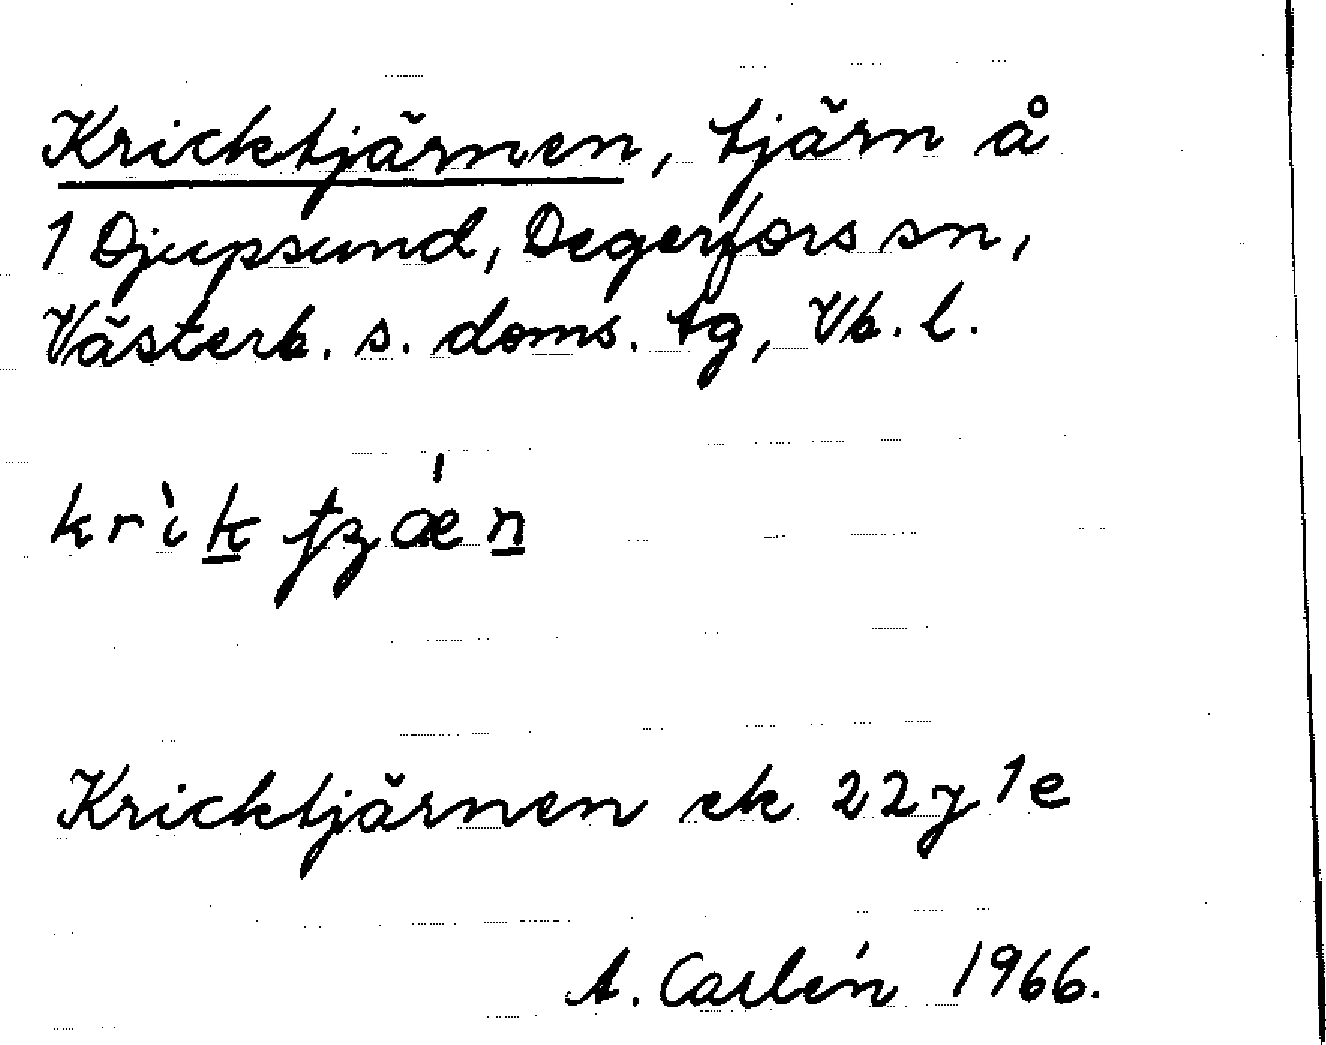 Kricktjärnen, tjärn å
1 Djupsund, Degerfors sn,
Västerb. s. doms. tg, Vb. l.
krìk tʒǽn
Kricktjärnen ek 22 y 1e
A. Carlén 1966.